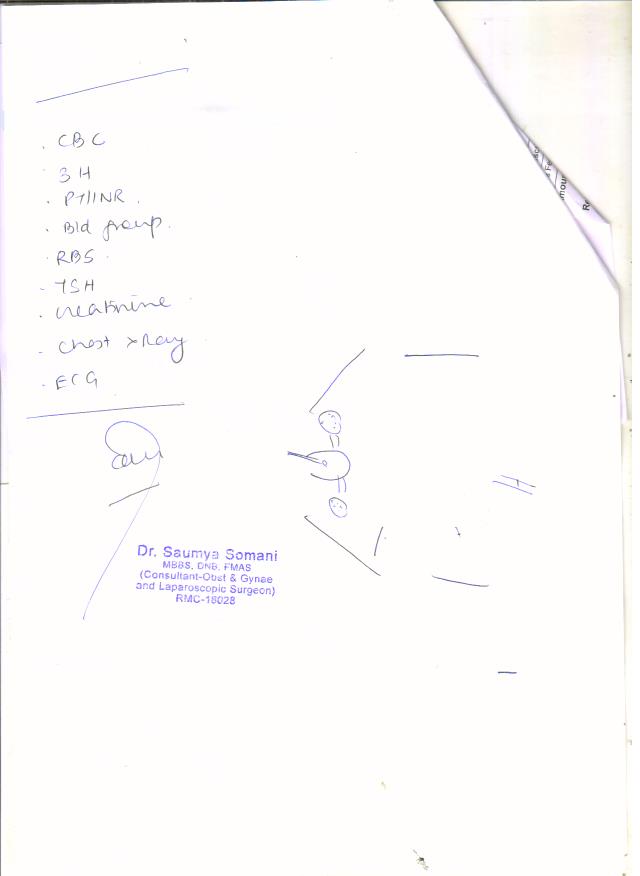 . CBC
. 3H
. PT/INR.
. Bld group.
. RBS.
- TSH
. creatinine
- Chest xRay
- ECG
Dr. Saumya Somani
MBBS, DNB, FMAS
(Consultant-Obst & Gynae
and Laparoscopic Surgeon)
RMC-16028